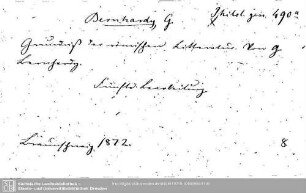 Bernhardy, G.
Philol. gen. 490ᵃ
Grundriß der römischen Litteratur. Von G
Bernhardy.
Fünfte Bearbeitung
Braunschweig 1872. 8
Sächsische Landesbibliothek -
Staats- und Universitätsbibliothek Dresden